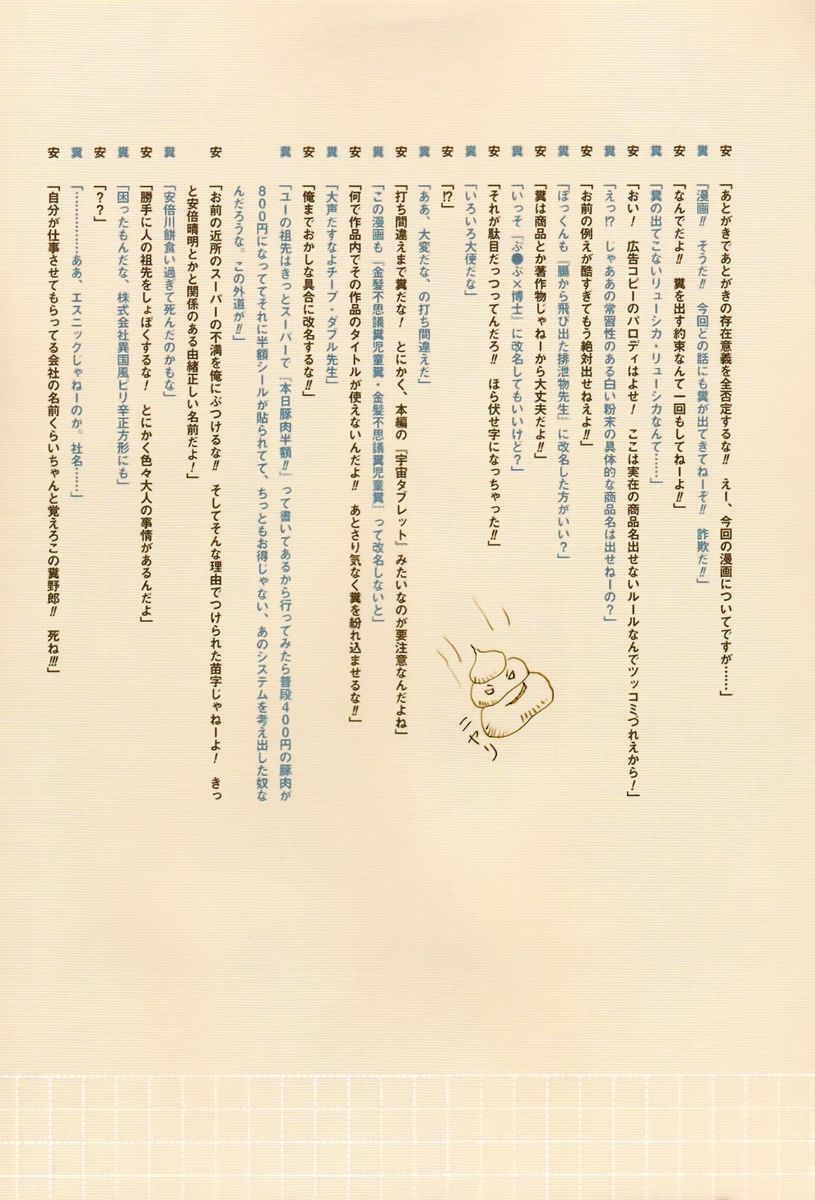 安「あとがきであとがきの存在意義を全否定するな!! えー、今回の漫画についてですが……」
糞「漫画!! そうだ!! 今回どの話にも糞が出てきてねーぞ!! 詐欺だ!!」
安「なんでだよ!! 糞を出す約束なんて一回もしてねーよ!!」
糞「糞の出てこないリューシカ・リューシカなんて……」
安「おい! 広告コピーのパロディはよせ! ここは実在の商品名出せないルールなんでツッコミづれえから!」
糞「えっ!? じゃああの常習性のある白い粉末の具体的な商品名は出せねーの?」
安「お前の例えが酷すぎてもう絶対出せねえよ!!」
糞「ぼっくんも『腸から飛び出た排泄物先生』に改名した方がいい?」
安「糞は商品とか著作物じゃねーから大丈夫だよ!!」
糞「いっそ『ぷ●ぷ×博士』に改名してもいいけど?」
安「それが駄目だっつってんだろ!! ほら伏せ字になっちゃった!!」
糞「いろいろ大便だな」
安「!?」
糞「ああ、大変だな、の打ち間違えだ」
安「打ち間違えまで糞だな! とにかく、本編の『宇宙タブレット』みたいなのが要注意なんだよね」
糞「この漫画も『金髪不思議糞児童糞・金髪不思議糞児童糞』って改名しないと」
安「何で作品内でその作品のタイトルが使えないんだよ!! あとさり気なく糞を紛れ込ませるな!!」
糞「大声だすなよチープ・ダブル先生」
安「俺までおかしな具合に改名するな!!」
糞「ユーの祖先はきっとスーパーで『本日豚肉半額!!』って書いてあるから行ってみたら普段400円の豚肉が
800円になっててそれに半額シールが貼られてて、ちっともお得じゃない、あのシステムを考え出した奴な
んだろうな。この外道が!!」
安「お前の近所のスーパーの不満を俺にぶつけるな!! そしてそんな理由でつけられた苗字じゃねーよ! きっ
と安倍晴明とかと関係のある由緒正しい名前だよ!」
糞「安倍川餅食い過ぎて死んだのかもな」
安「勝手に人の祖先をしょぼくするな! とにかく色々大人の事情があるんだよ」
糞「困ったもんだな、株式会社異国風ピリ辛正方形にも」
安「??」
糞「……………ああ、エスニックじゃねーのか。社名……」
安「自分が仕事させてもらってる会社の名前くらいちゃんと覚えろこの糞野郎!! 死ね!!!」
ニヤリ